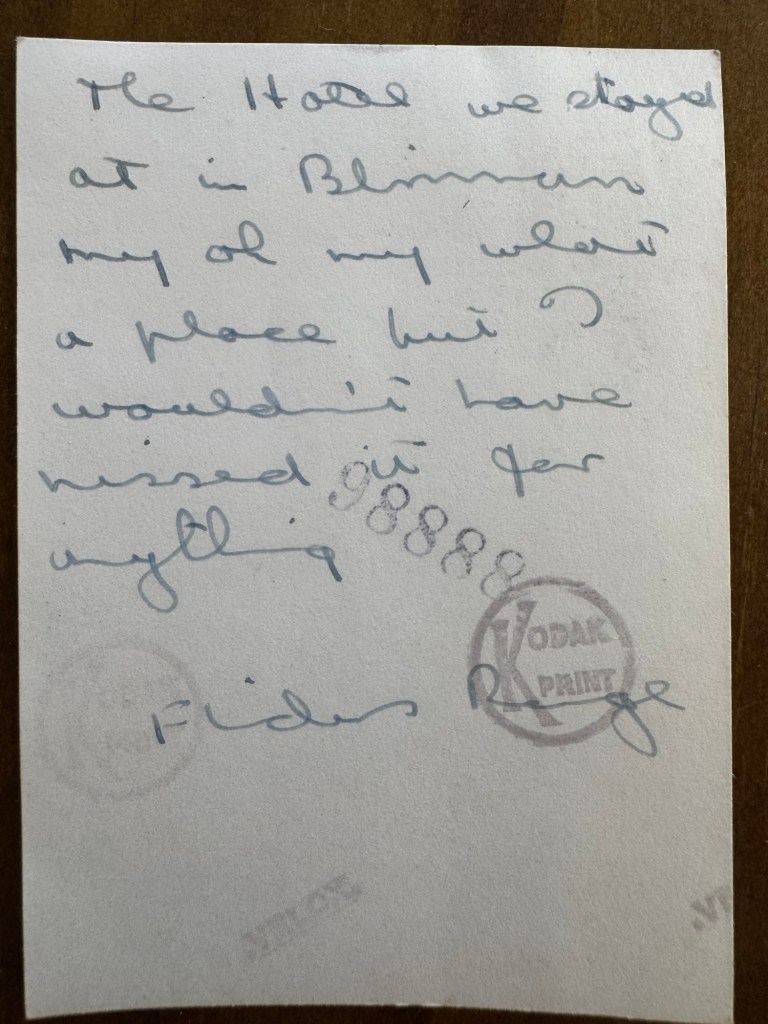 The Hotel we stayed
at in Blinman
my oh my what
a place but I
wouldn't have
missed it for
anything
98888
KODAK
PRINT
Fliders Range
VELOX
.VE